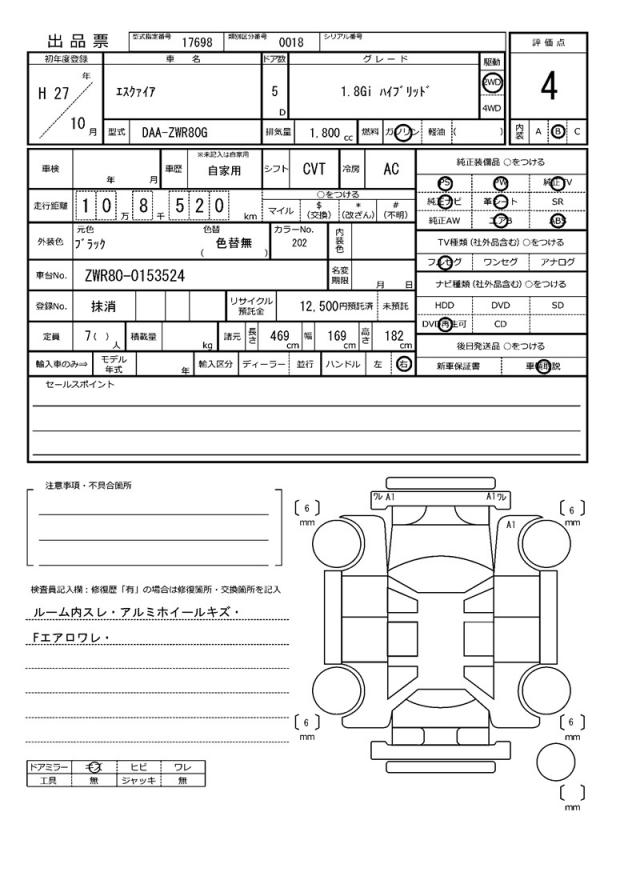 出品票 型式指定番号 17698 類別区分番号 0018 シリアル番号
評価点
4
内装 A B C
初年度登録 車名 ドア数 グレード 駆動
H 27 年 10 月
エスクァイア 5 D 1.8Gi ハイブリッド 2WD 4WD
型式 DAA-ZWR80G 排気量 1.800 cc 燃料 ガソリン 軽油 ( )
車検 年 月 車歴 ※未記入は自家用 自家用 シフト CVT 冷房 AC
走行距離 10万8千520 km
○をつける
マイル $(交換) *(改ざん) #(不明)
外装色 元色 ブラック 色替 ( 色替無 ) カラーNo. 202 内装色
車台No. ZWR80-0153524 名変期限 月 日
登録No. 抹消 リサイクル預託金 12,500円預託済 未預託
定員 7( )人 積載量 kg 諸元 長さ 469cm 幅 169cm 高さ 182cm
輸入車のみ⇒ モデル年式 年 輸入区分 ディーラー 並行 ハンドル 左 右
純正装備品 ○をつける
PS PW 純正TV
純正ナビ 革シート SR
純正AW エアB ABS
TV種類(社外品含む)○をつける
フルセグ ワンセグ アナログ
ナビ種類(社外品含む)○をつける
HDD DVD SD
DVD再生可 CD
後日発送品 ○をつける
新車保証書 車輌取説
セールスポイント
注意事項・不具合箇所
検査員記入欄:修復歴「有」の場合は修復箇所・交換箇所を記入
ルーム内スレ・アルミホイールキズ・
Fエアロワレ・
ドアミラー キズ ヒビ ワレ
工具 無 ジャッキ 無
ワレ A1 A1 ワレ
A1
[ 6 ] mm
[ 6 ] mm
[ 6 ] mm
[ 6 ] mm
[ ] mm